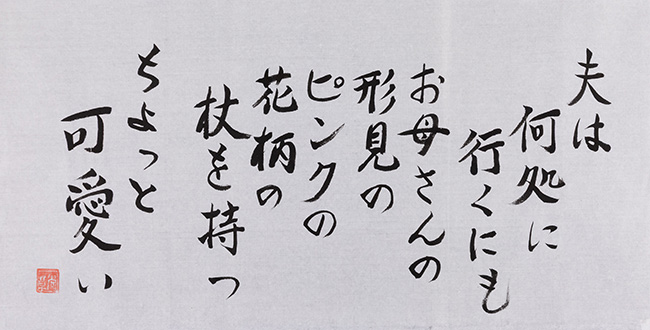 夫は
何処に
行くにも
お母さんの
形見の
ピンクの
花柄の
杖を持つ
ちょっと
可愛い